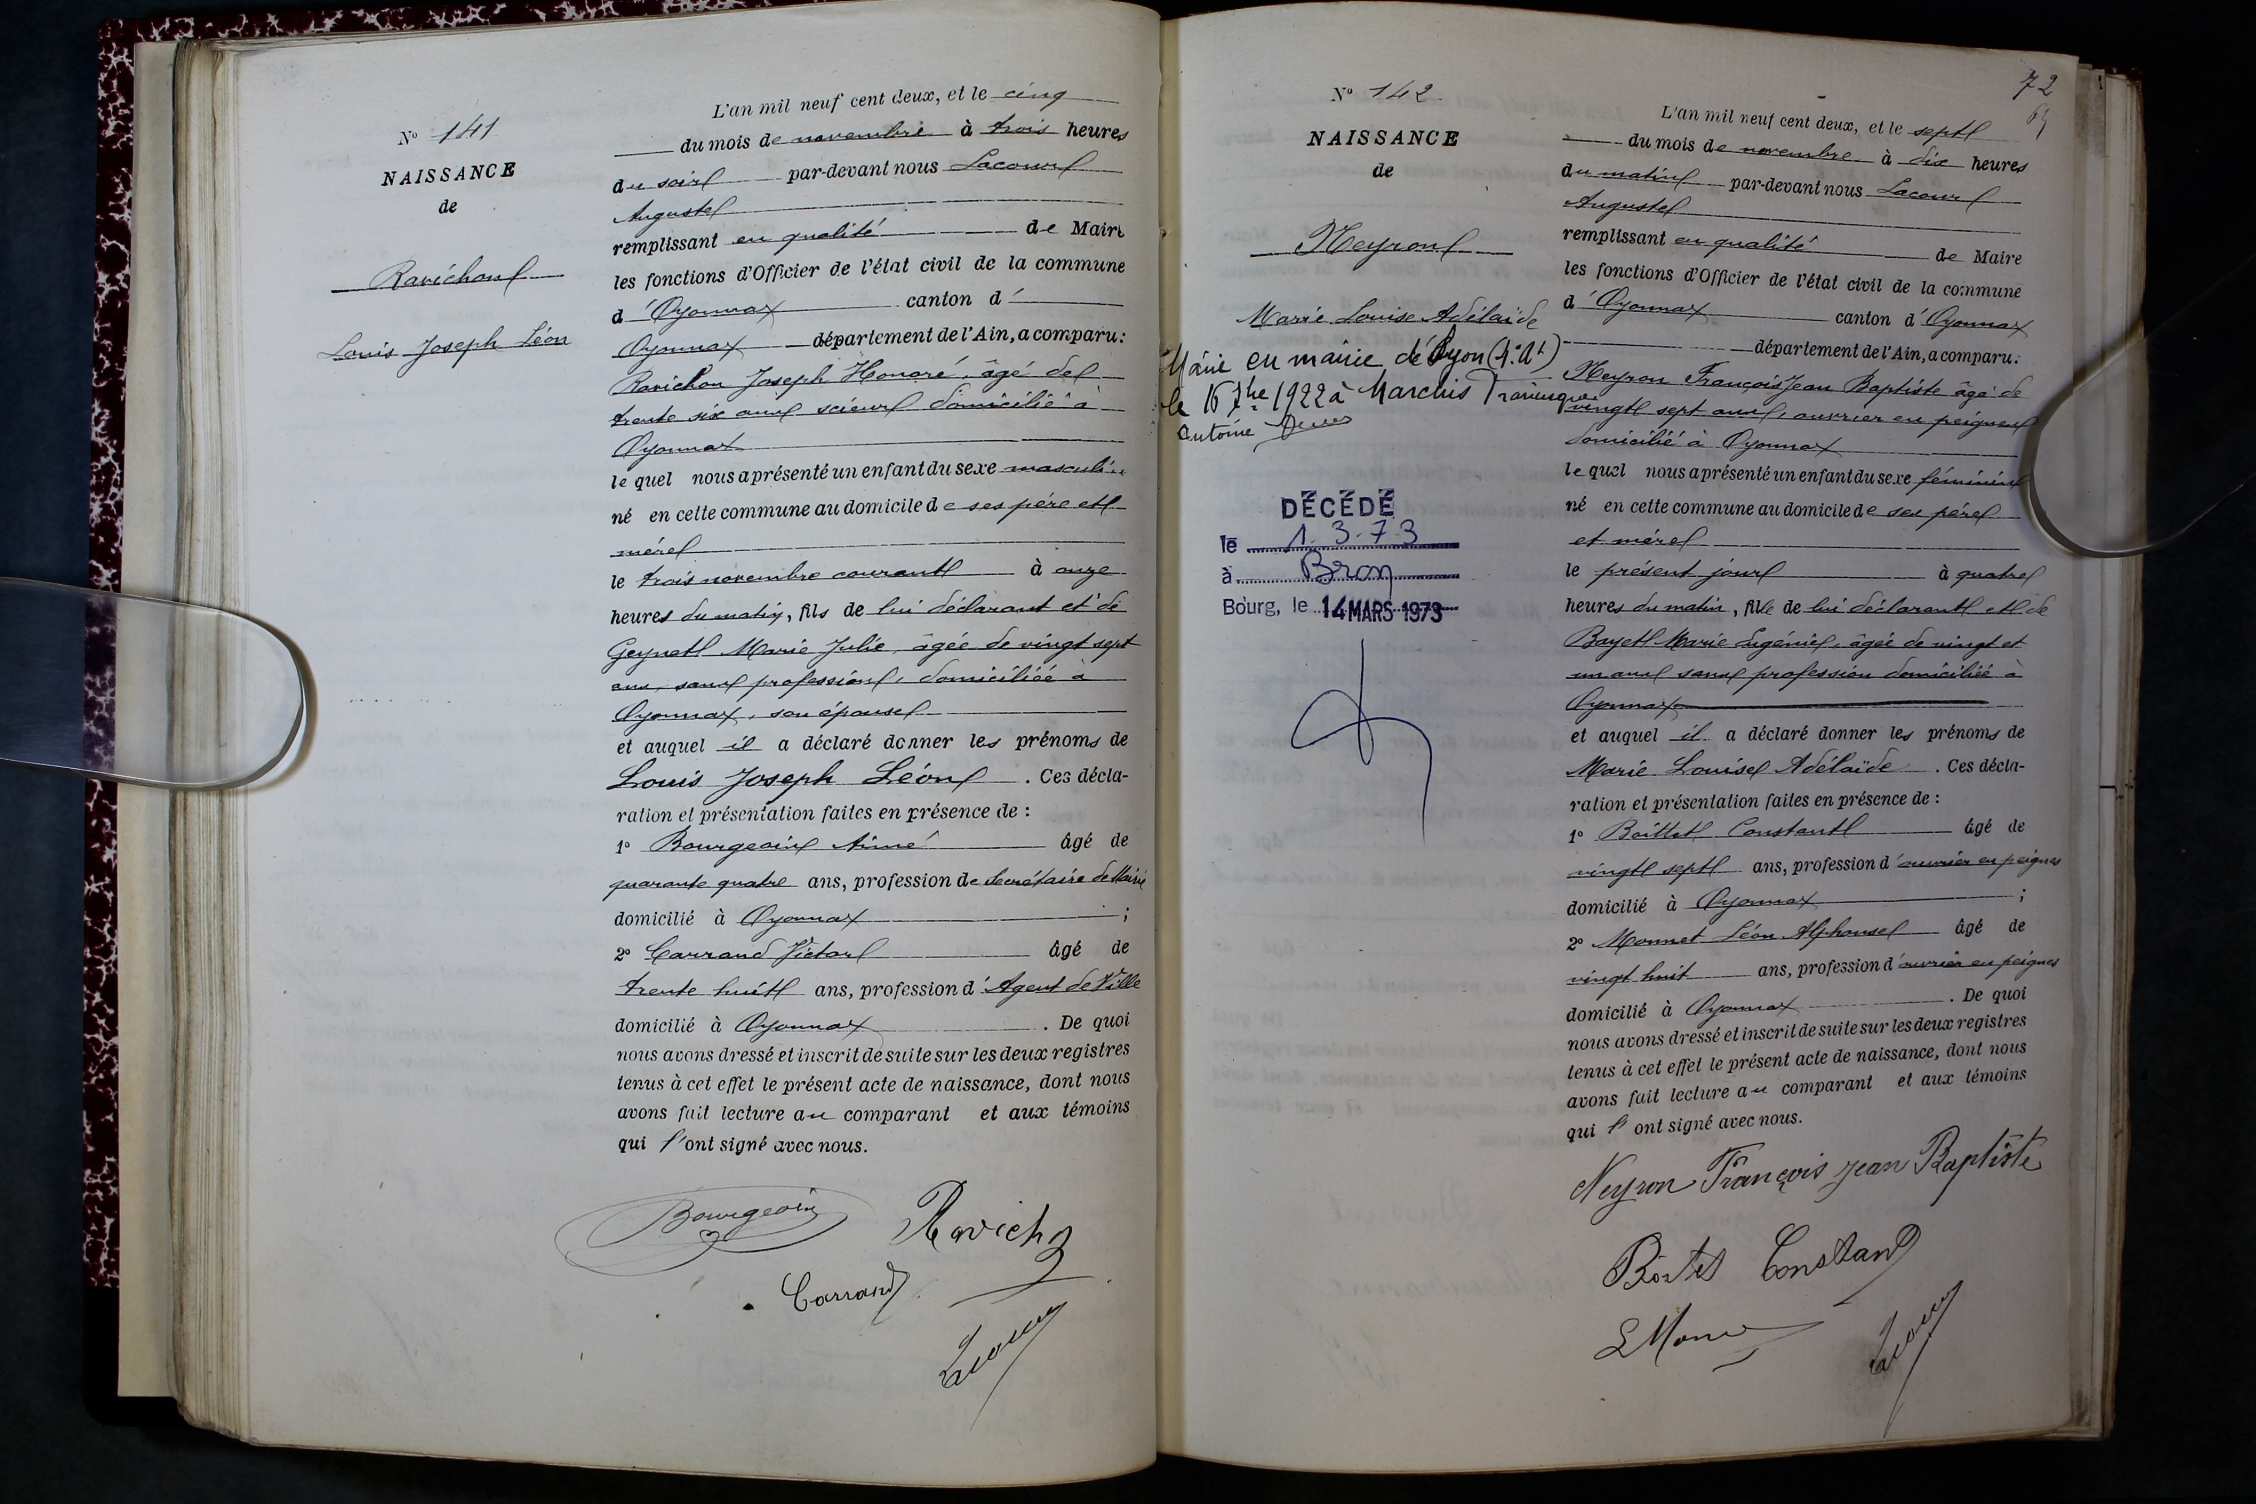 N° 141
NAISSANCE
de
Ravichon
Louis Joseph Léon
L'an mil neuf cent deux, et le cinq
du mois de novembre à trois heures
du soir par-devant nous Lacour
Auguste
remplissant en qualité de Maire
les fonctions d'Officier de l'état civil de la commune
d'Oyonnax canton d'
Oyonnax département de l'Ain, a comparu:
Ravichon Joseph Honoré, âgé de
trente six ans scieur domicilié à
Oyonnax
lequel nous a présenté un enfant du sexe masculin
né en cette commune au domicile de ses père et
mère
le trois novembre courant à onze
heures du matin, fils de lui déclarant et de
Geynet Marie Julie, âgée de vingt sept
ans, sans profession, domiciliée à
Oyonnax, son épouse
et auquel il a déclaré donner les prénoms de
Louis Joseph Léon. Ces décla-
ration et présentation faites en présence de :
1° Bourgeoin Aimé âgé de
quarante quatre ans, profession de Secrétaire de Mairie
domicilié à Oyonnax ;
2° Carrand Victor âgé de
trente huit ans, profession d'Agent de Ville
domicilié à Oyonnax. De quoi
nous avons dressé et inscrit de suite sur les deux registres
tenus à cet effet le présent acte de naissance, dont nous
avons fait lecture au comparant et aux témoins
qui l'ont signé avec nous.
Bourgeoin Ravichon
Carrand
Lacour
72
N° 142
NAISSANCE
de
Neyron
Marie Louise Adélaïde
Mariée en mairie de Lyon (4e At)
le 16 7bre 1922 à Marchis
Antoine
DÉCÉDÉ
le 1.3.73
à Bron
Bourg, le 14 MARS 1973
L'an mil neuf cent deux, et le sept
du mois de novembre à dix heures
du matin par-devant nous Lacour
Auguste
remplissant en qualité de Maire
les fonctions d'Officier de l'état civil de la commune
d'Oyonnax canton d'Oyonnax
département de l'Ain, a comparu:
Neyron François Jean Baptiste âgé de
vingt sept ans, ouvrier en peignes
domicilié à Oyonnax
lequel nous a présenté un enfant du sexe féminin
né en cette commune au domicile de ses père
et mère
le présent jour à quatre
heures du matin, fille de lui déclarant et de
Bayet Marie Eugénie, âgée de vingt et
un ans sans profession domiciliée à
Oyonnax
et auquel il a déclaré donner les prénoms de
Marie Louise Adélaïde. Ces décla-
ration et présentation faites en présence de :
1° Boittet Constant âgé de
vingt sept ans, profession d'ouvrier en peignes
domicilié à Oyonnax ;
2° Monnet Léon Alphonse âgé de
vingt huit ans, profession d'ouvrier en peignes
domicilié à Oyonnax. De quoi
nous avons dressé et inscrit de suite sur les deux registres
tenus à cet effet le présent acte de naissance, dont nous
avons fait lecture au comparant et aux témoins
qui l'ont signé avec nous.
Neyron François Jean Baptiste
Constant
Lacour